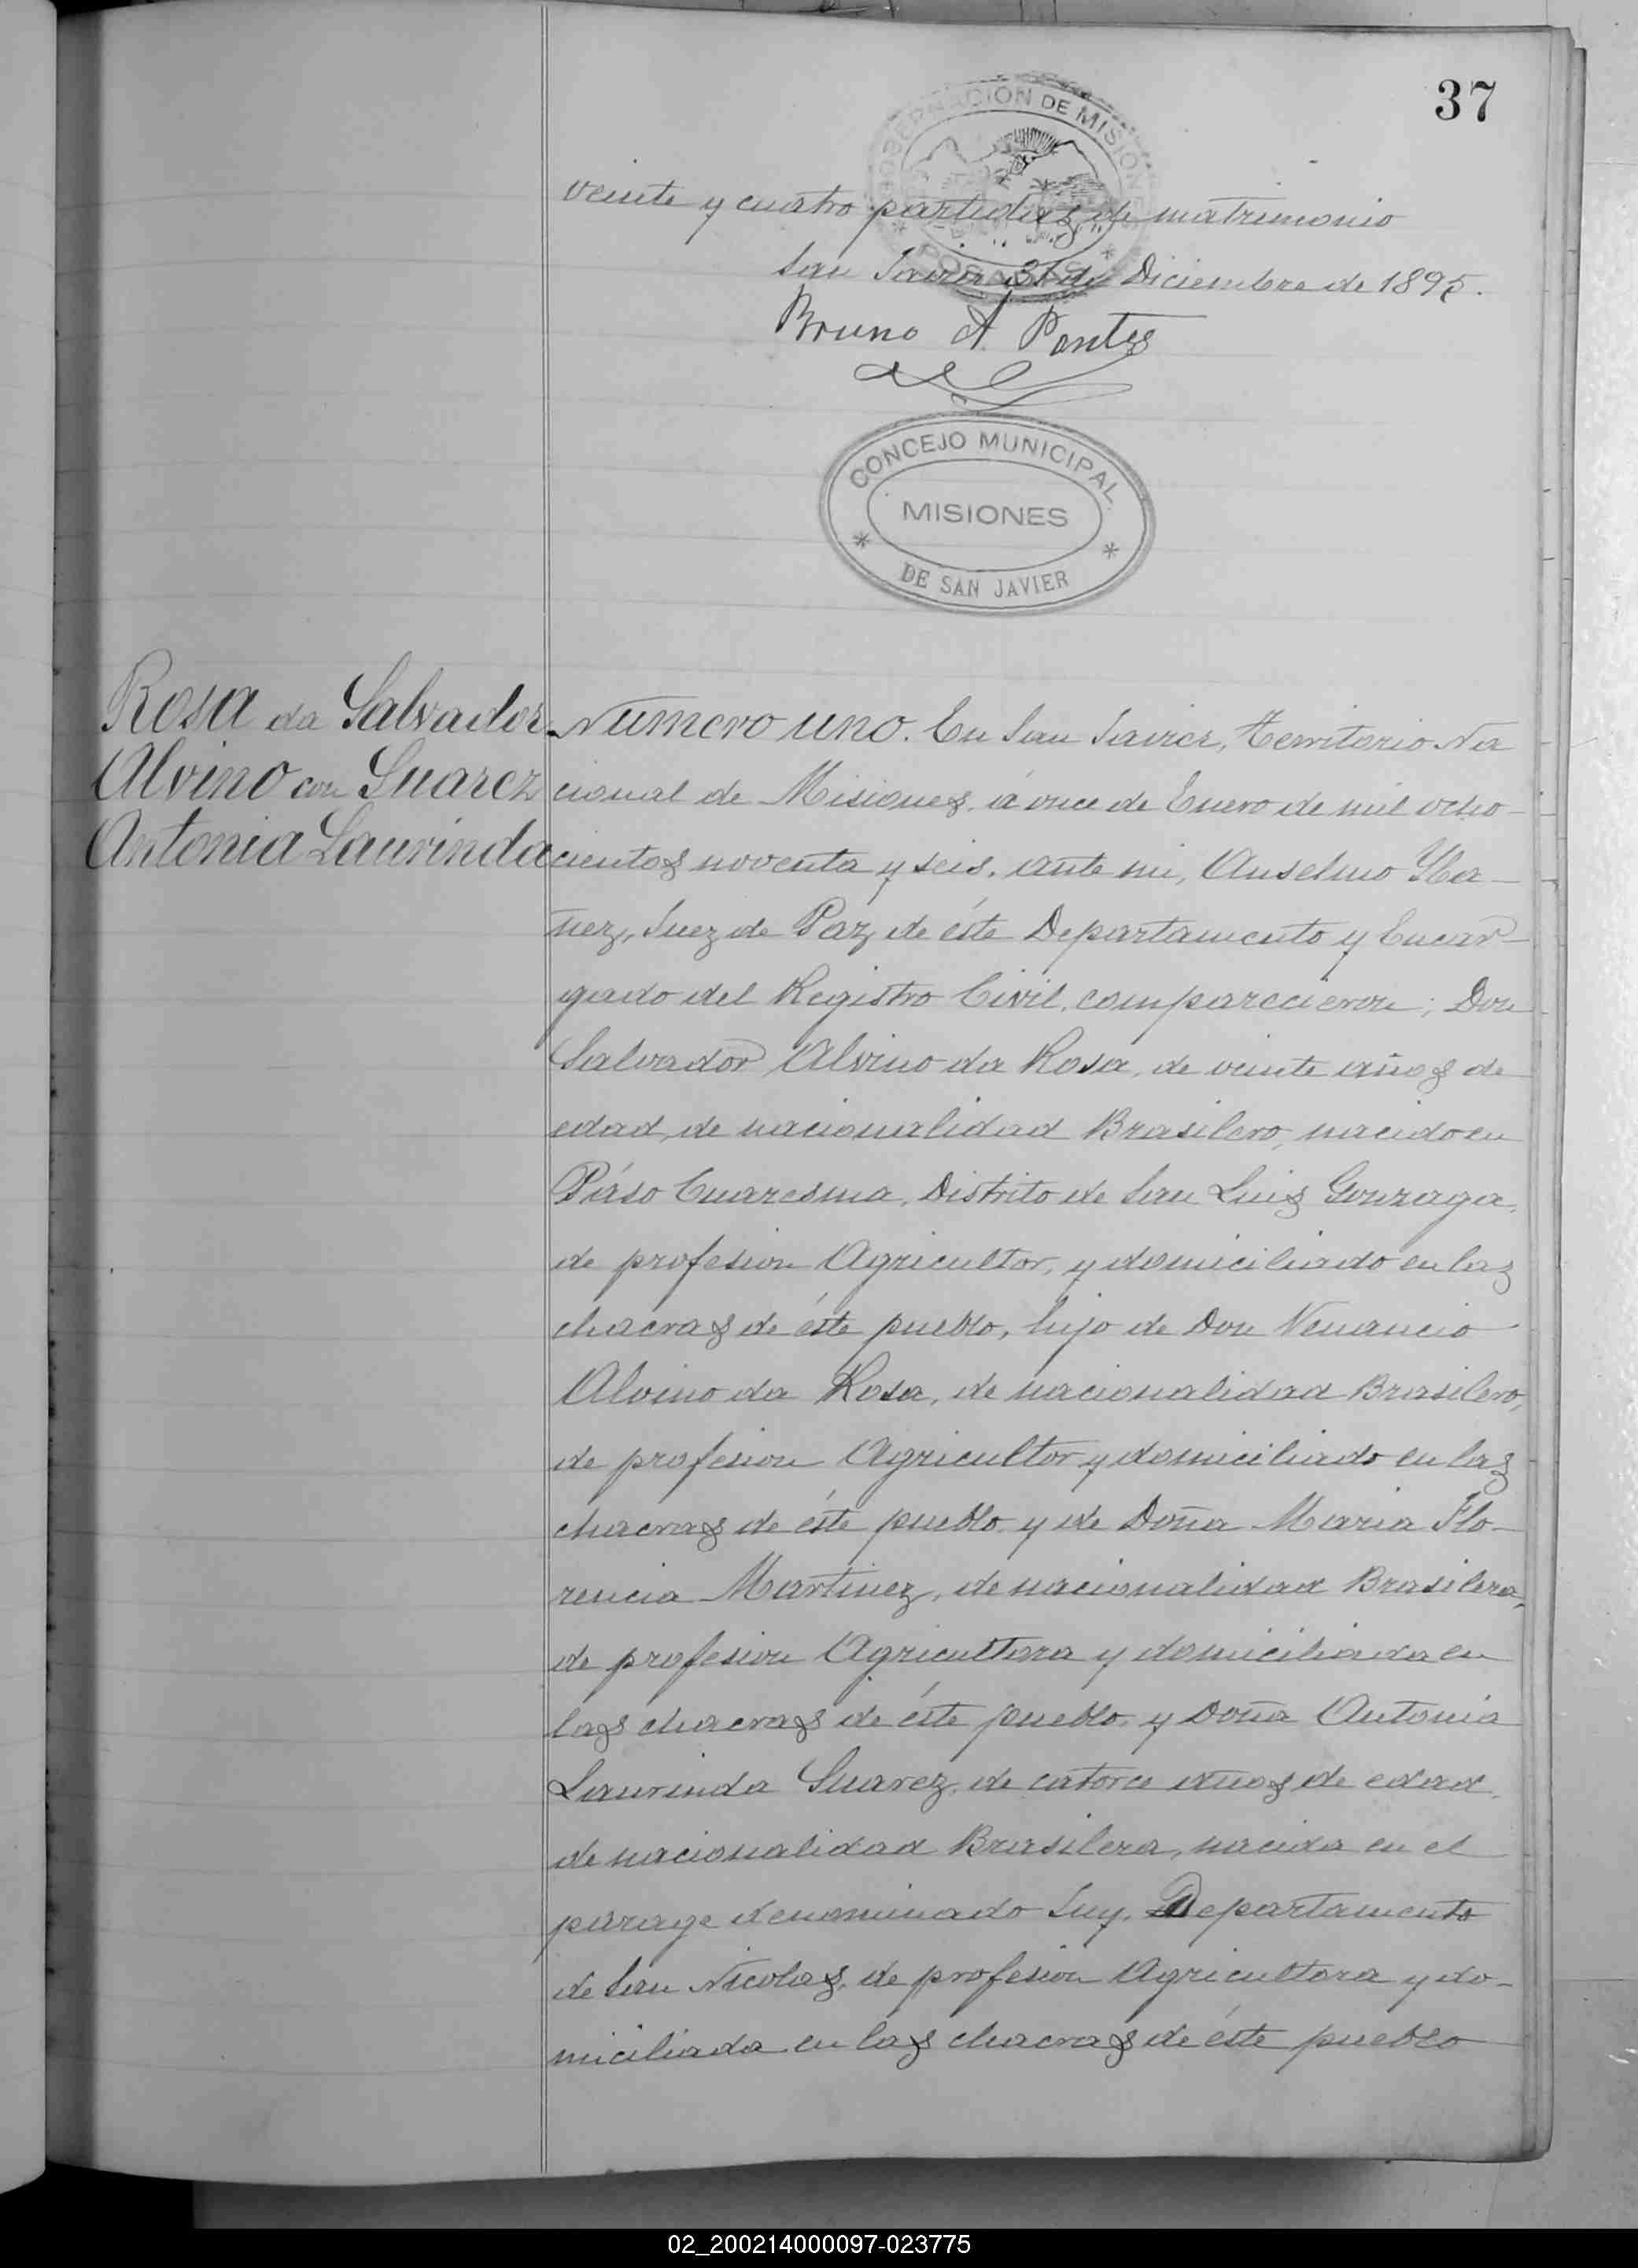 37
GOBERNACION DE MISIONES
POSADAS
veinte y cuatro partidas de matrimonio
San Javier 31 de Diciembre de 1895.
Bruno A. Pontes
CONCEJO MUNICIPAL
MISIONES
DE SAN JAVIER
Rosa da Salvador
Alvino con Suarez
Antonia Laurinda
Numero uno. En San Javier, Territorio Na
cional de Misiones, á once de Enero de mil ocho-
cientos noventa y seis, ante mi, Anselmo Yba-
ñez, Juez de Paz, de éste Departamento y Encar-
gado del Registro Civil, comparecieron; Don
Salvador Alvino da Rosa, de veinte años de
edad, de nacionalidad Brasilero, nacido en
Páso Cuaresma, Distrito de San Luis Gonzaga,
de profesion Agricultor, y domiciliado en las
chacras de éste pueblo, hijo de Don Venancio
Alvino da Rosa, de nacionalidad Brasilero,
de profesion Agricultor y domiciliado en las
chacras de éste pueblo y de Doña Maria Flo-
rencia Martinez, de nacionalidad Brasilera,
de profesion Agricultora y domiciliada en
las chacras de éste pueblo, y Doña Antonia
Laurinda Suarez, de catorce años de edad,
de nacionalidad Brasilera, nacida en el
parage denominado Iuy, Departamento
de San Nicolas, de profesion Agricultora y do-
miciliada en las chacras de éste pueblo
02_200214000097-023775